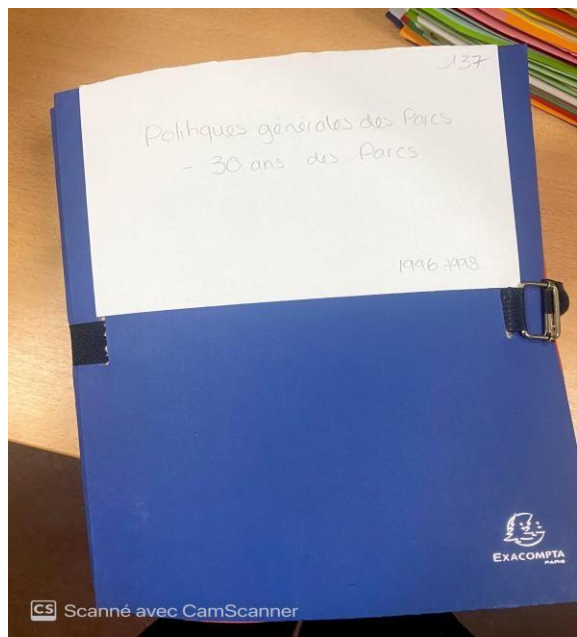 137
Politiques générales des Parcs
- 30 ans des Parcs
1996-1998
EXACOMPTA
PARIS
CS Scanné avec CamScanner